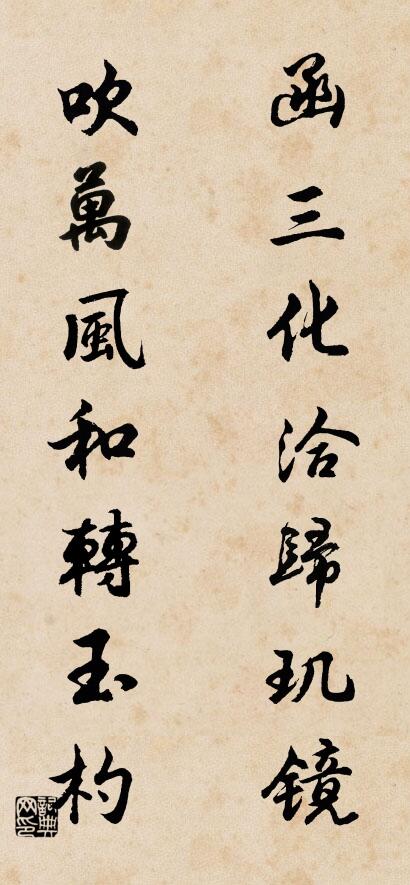 函三化洽归玑镜
吹萬風和轉玉杓